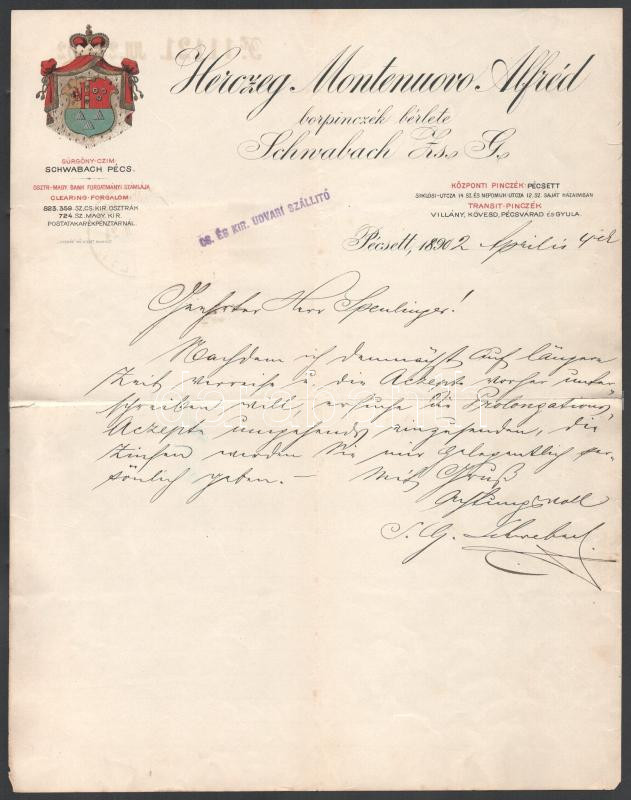 Herczeg Montenuovo Alfréd
borpinczék bérlete
Schwabach Zs. G.
SÜRGÖNY-CZIM:
SCHWABACH PÉCS.
OSZTR-MAGY. BANK FORGATMÁNYI SZÁMLÁJA
CLEARING-FORGALOM:
823.359. SZ. CS. KIR. OSZTRÁK
724. SZ. MAGY. KIR.
POSTATAKARÉKPÉNZTÁRNÁL.
KÖZPONTI PINCZÉK: PÉCSETT
SIKLÓSI-UTCZA 14 SZ. ÉS NEPOMUK-UTCZA 12. SZ. SAJÁT HÁZAIMBAN
TRANSIT-PINCZÉK
VILLÁNY, KÖVESD, PÉCSVÁRAD ÉS GYULA.
CS. ÉS KIR. UDVARI SZÁLLITÓ
Pécsett, 1890 2 Április 4én
Geehrter Herr Spenlinger!
Nachdem ich demnächst auf längere
Zeit verreise u die Aczepte vorher unter-
schreiben will, ersuche die Prolongations
Aczepte umgehendst einzusenden, die
Zinsen werden Sie mir gelegentlich per-
sönlich geben. –
Mit Gruß
Achtungsvoll
S. G. Schwabach